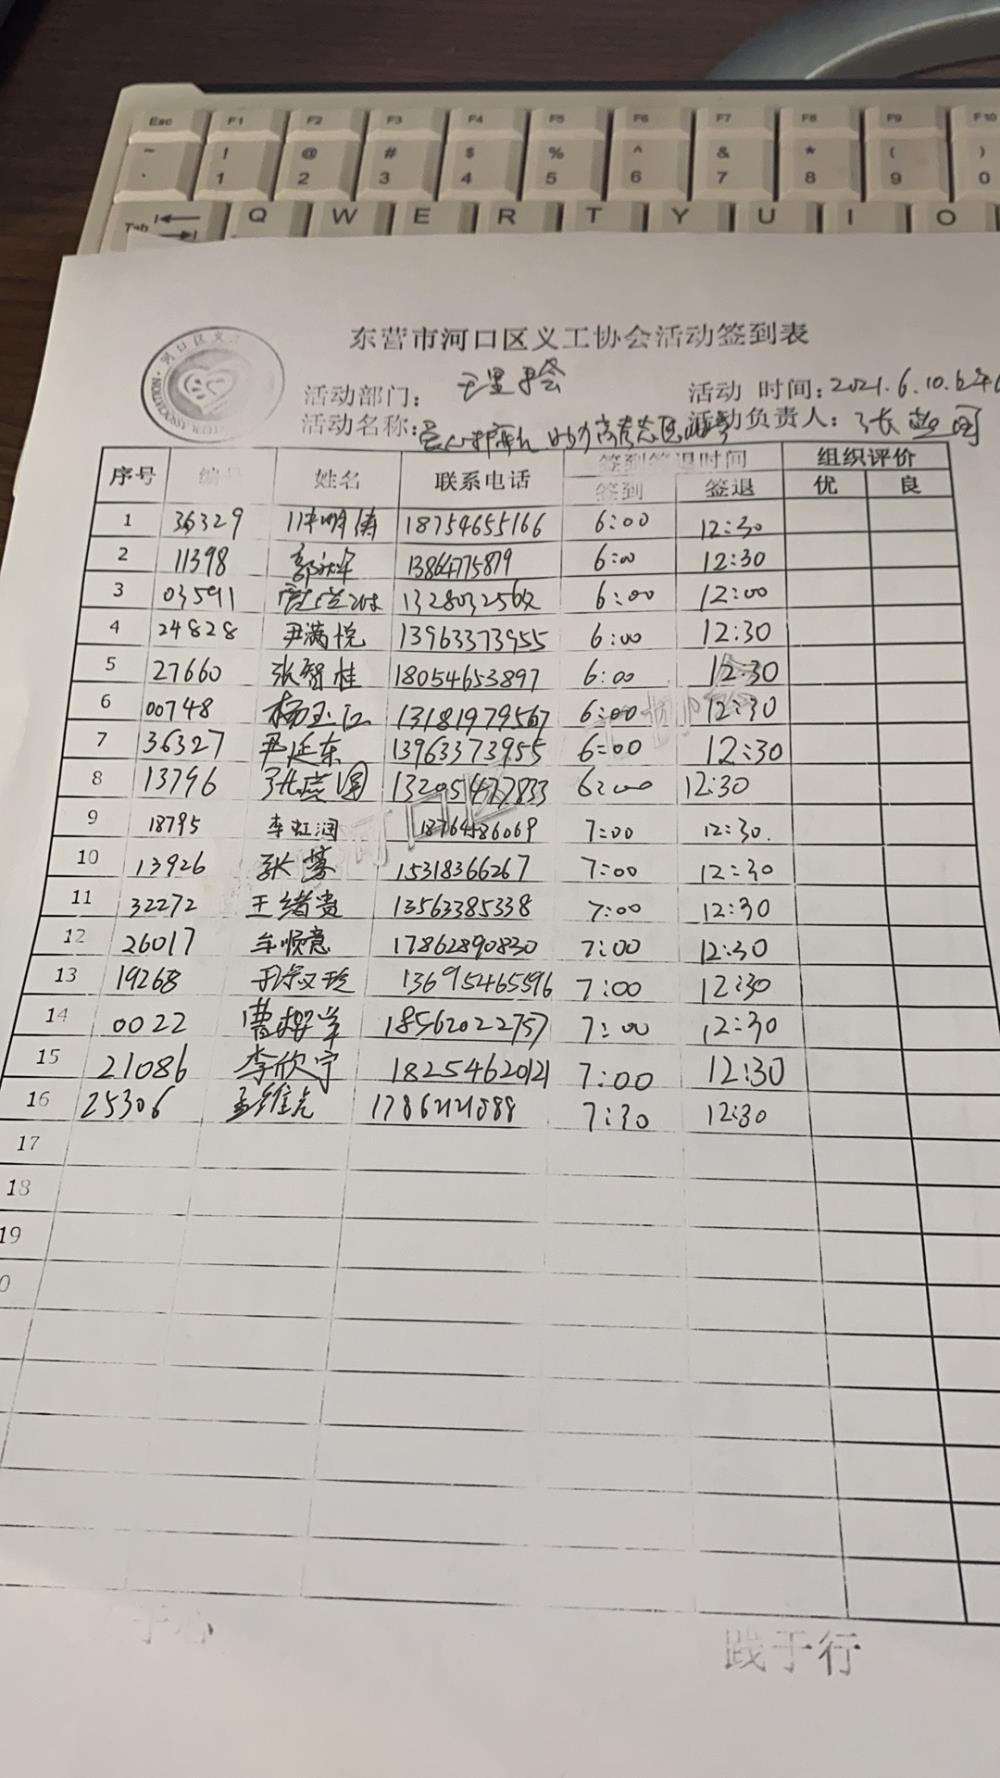 Esc F1 F2 F3 F4 F5 F6 F7 F8 F9 F10
~ ! @ # $ % ^ & * ( )
1 2 3 4 5 6 7 8 9 0
Tab Q W E R T Y U I O
东营市河口区义工协会活动签到表
河口区义
活动部门:
活动 时间:2021.6.10.
活动名称:
活动负责人:张
序号 编号 姓名 联系电话 签到签退时间 组织评价
签到 签退 优 良
1 36329 明涛 18754655166 6:00 12:30
2 11398 郭 13864775879 6:00 12:30
3 03591 6:00 12:00
4 24828 尹满悦 13963373955 6:00 12:30
5 27660 张智桂 18054653897 6:00 12:30
6 00748 杨玉江 13181979567 6:00 12:30
7 36327 尹延东 13963373955 6:00 12:30
8 13796 张 6:00 12:30
9 18795 李虹润 18764586069 7:00 12:30.
10 13926 张 15318366267 7:00 12:30
11 32272 王绪贵 13563385338 7:00 12:30
12 26017 牟顺意 17862890830 7:00 12:30
13 19268 13695465596 7:00 12:30
14 0022 曹 18562022757 7:00 12:30
15 21086 李欣宁 18254620121 7:00 12:30
16 25306 孟维 7:30 12:30
17
18
19
0
践于行